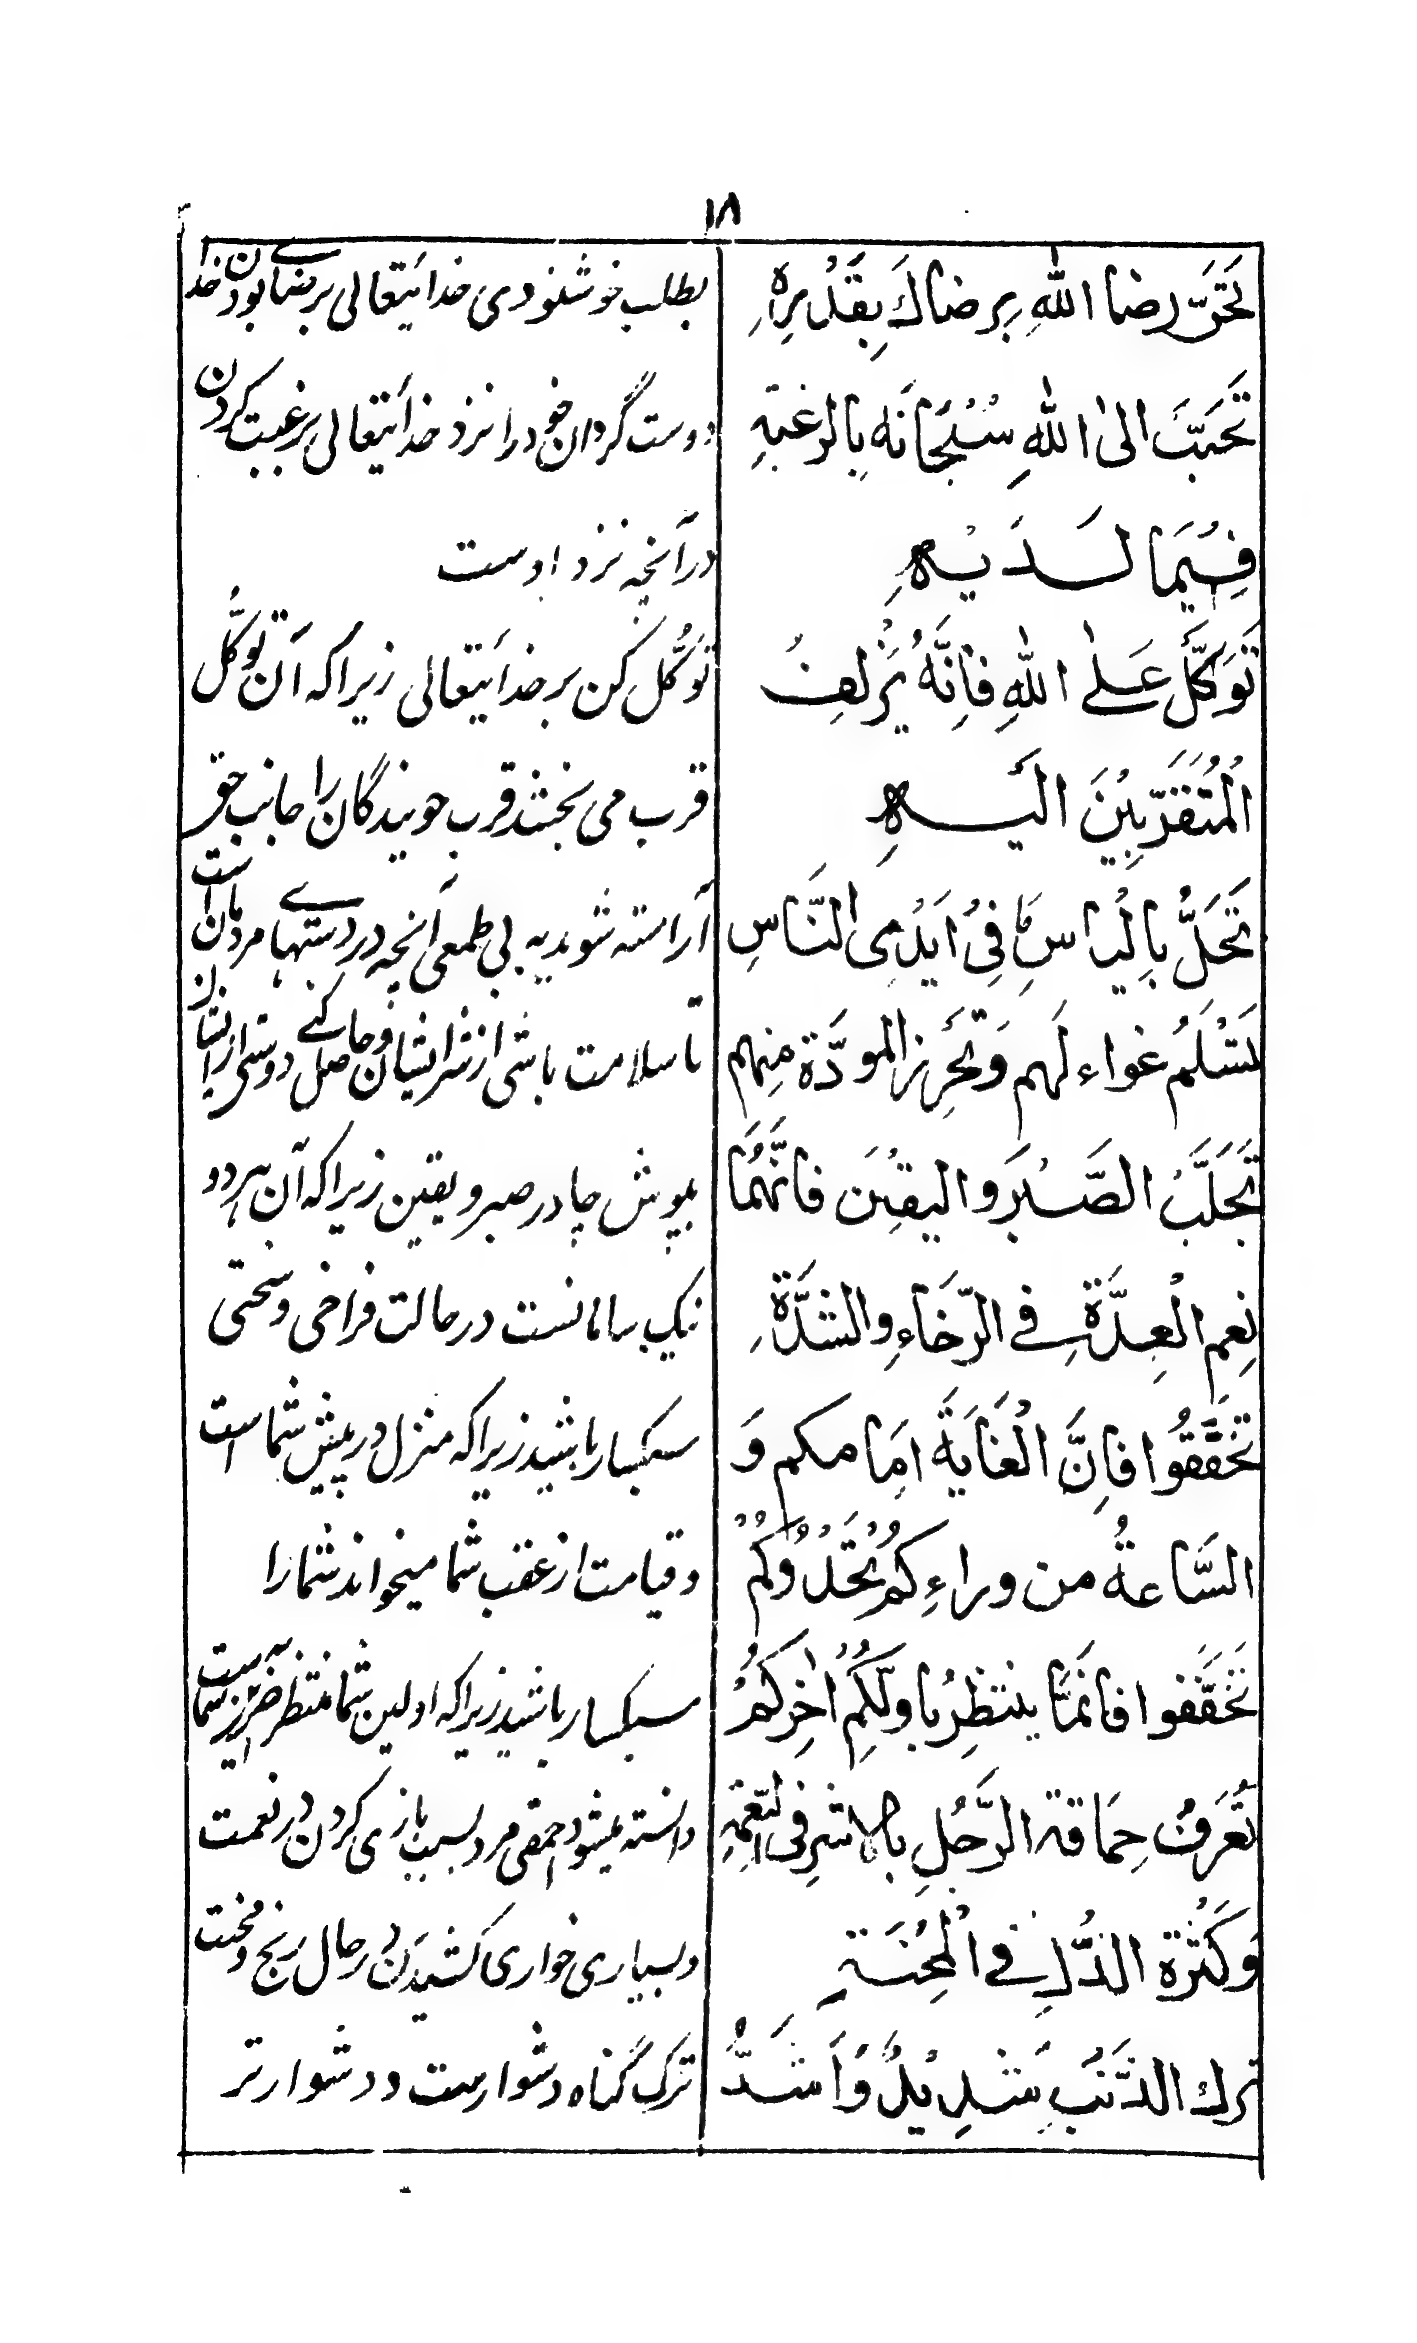 ١٨
تَحَرَّ رضا اللهِ بِرضاكَ بِقَدْرِهِ
بطلب خوشنودی خدایتعالی برضای بودن خدا
تَحَبَّبَ الیٰ اللهِ سُبْحَانَه بِالرغبةِ
دوست گردان خود را نزد خدایتعالی برغبت کردن
فِيْمَا لَدَيْهِ
درآنچه نزد اوست
تَوَكَّلْ عَلٰى اللهِ فَاِنَّهُ يُزْلِفُ
توکُّل کن بر خدایتعالی زیرا که آن توکُّل
الْمُتَقَرِّبِيْنَ الَيْهِ
قرب می بخشد قرب جویندگان را جانب حق
تَحَلَّ بِالْيَاسِ مِمَّا فِيْ اَيْدِى النَّاسِ
آراسته شوید به بی طمعی آنچه در دستهاے مردمان است
تَسْلَمُ غواءلَهم وَتُحْرِز المودَّة منهم
تا سلامت باشی از شر ایشان و حاصل کنے دوستی را از ایشان
تَجَلْبَبُ الصَّبْرَ واليقِيْنَ فانَّهُمَا
بپوش چادر صبر و یقین زیرا که آن هر دو
نِعم الْعِدَّةِ فے الرَّخَاءِ والشدَّةِ
نیک سامانست در حالت فراخی و سختی
تَخَفَّفُوا فاِنَّ الْغَايَةَ امَامكم وَ
سبکسار باشید زیرا که منزل در پیش شما است
السَّاعةُ من وراءِكُمْ تَحْدُوْكُمْ
و قیامت از عقب شما میخواند شما را
تَخَفَّفوا فانمَّا ينتظِرُ باولِكُمْ اٰخِركُمْ
سبکسار باشید زیرا که اولین شما منتظر آخرین شماست
تُعْرَفُ حِمَاقة الرَّجُلِ بالاشرِ فی النِّعْمَةِ
دانسته میشود احمقی مرد بسبب بازی کردن در نعمت
وَكَثْرة الذُّلِ فے الْمِحْنَةِ
و بسیاری خواری کشیدن در حال رنج و محنت
ترك الذَّنْبِ شَدِيْدٌ وَاَشَدُّ
ترک گناه دشوارست و دشوارتر